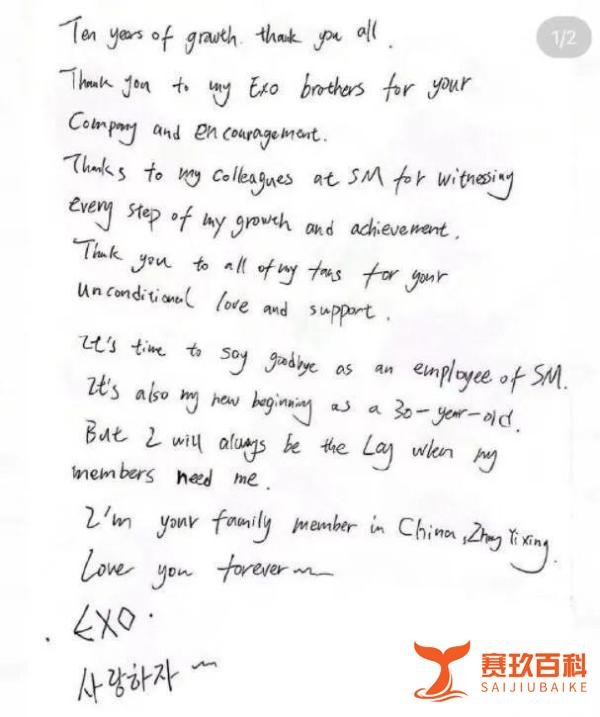 Ten years of growth. thank you all.
1/2
Thank you to my Exo brothers for your
Company and encouragement.
Thanks to my colleagues at SM for witnessing
every step of my growth and achievement.
Thank you to all of my fans for your
unconditional love and support.
It's time to say goodbye as an employee of SM.
It's also my new beginning as a 30-year-old.
But I will always be the Lay when my
members need me.
I'm your family member in China, Zhang Yixing.
Love you forever~
EXO.
사랑하자~
赛玖百科
SAIJIUBAIKE